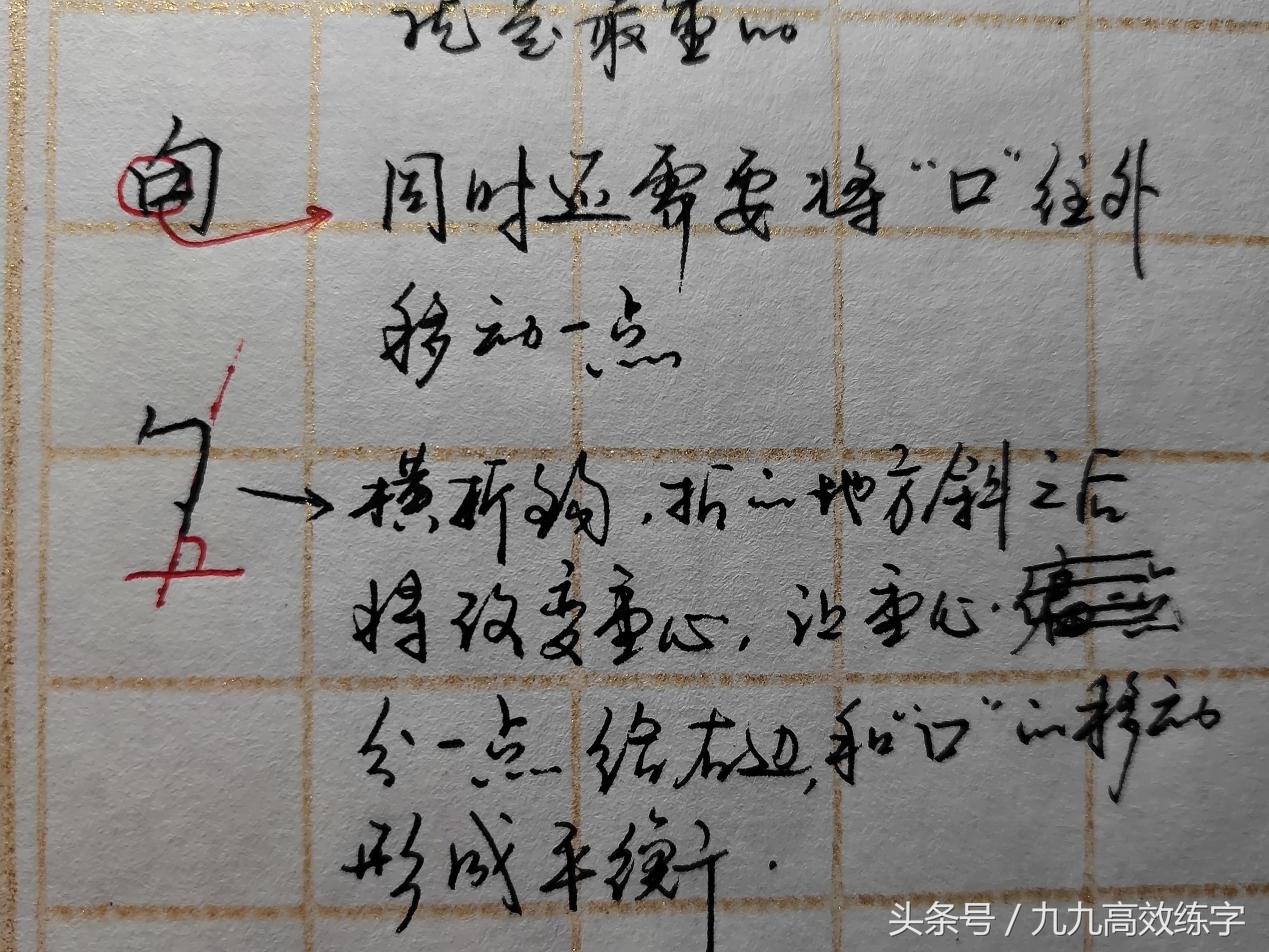 就是最重的
同时还需要将“口”往外
移动一点
横折钩，折的地方斜之后
将改变重心，让重心
分一点给右边，和“口”的移动
形成平衡。
头条号／九九高效练字